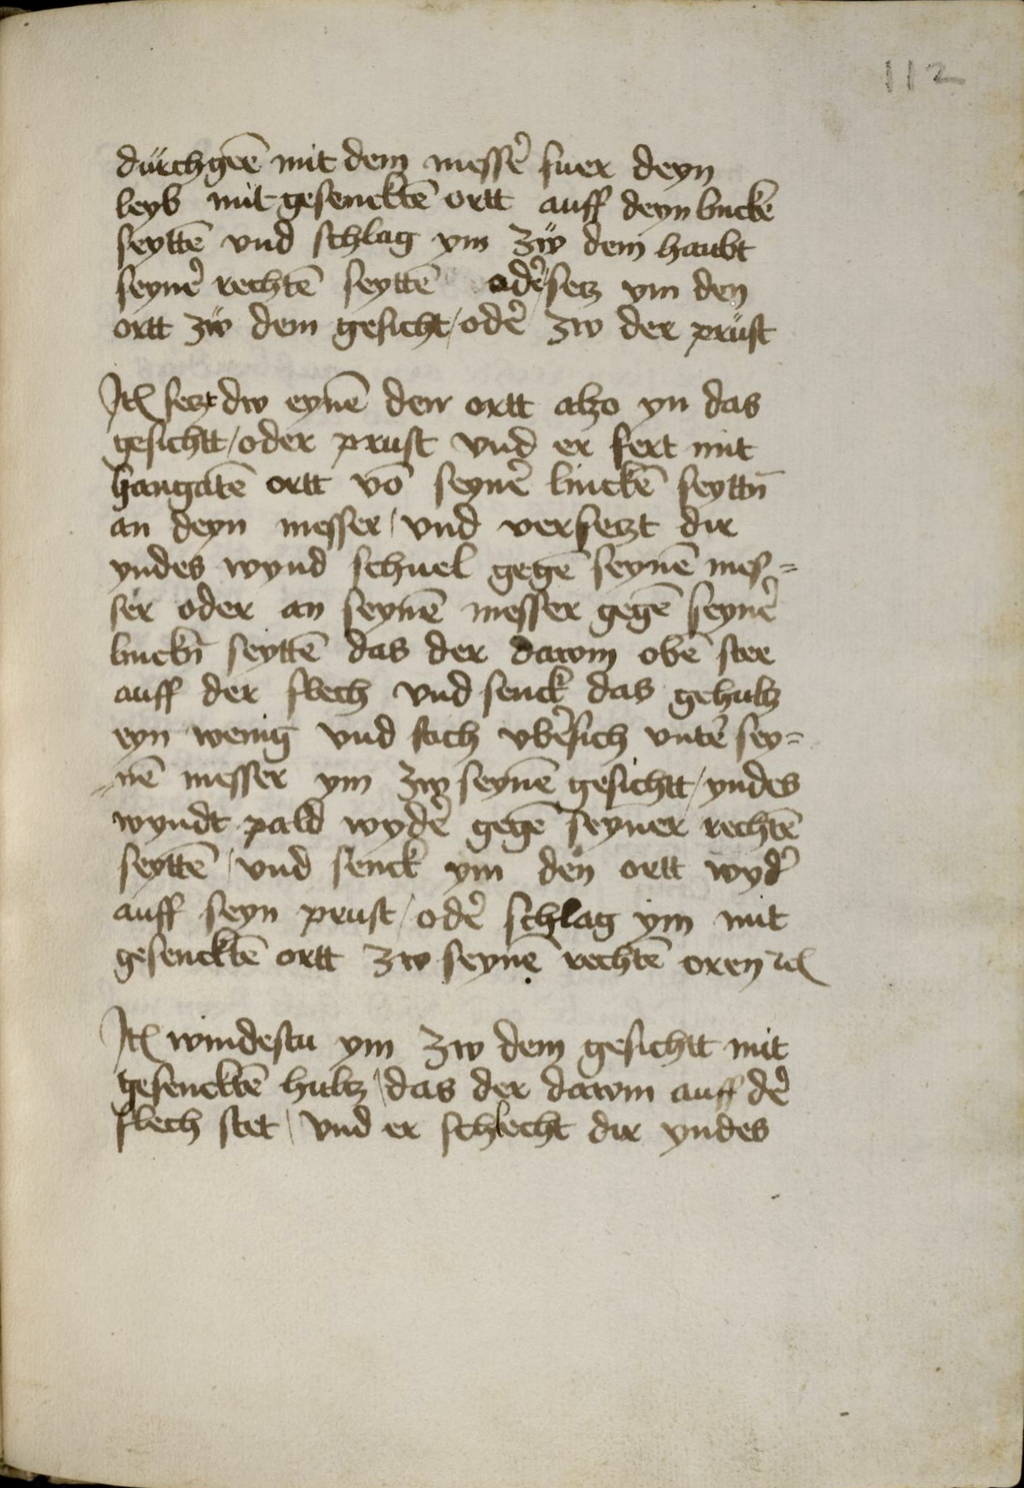 112
dürchgeē mit dem messer̄ fuer deyn
leyb mit gesencktē ortt auff deyn linckē
seyttē vnd schlag ym zẅ dem haubt
seyner̄ rechtē seyttē oder̄ setz ym den
ortt zẅ dem gesicht / oder̄ zw der prüst
Itꝫ setz dw eynē den ortt alzo yn das
gesichtt / oder prust vnd er fert mit
hangatē ortt vō seyner̄ linckē seyttn̄
an deyn messer / vnd versetzt dir
yndes wynd schnel gegē seynē mes=
ser oder an seynē messer gegē seyner̄
linckn̄ seyttē das der dawm obē stee
auff der flech vnd senck das gehultz
eyn wenig vnd stich vber̄sich vnter̄ sey=
=nē messer ym zw seynē gesichtt / yndes
wyndt pald wyder̄ gegē seyner rechtē
seyttē / vnd senck ym den ortt wyder̄
auff seyn prust / oder̄ schlag ym mit
gesencktē ortt zw seynē rechtē oren ꝛcꝫ
Itꝫ windestu ym zw dem gesichtt mit
gesencktē hultz / das der dawm auff der̄
flech stet / vnd er schlecht dir yndes